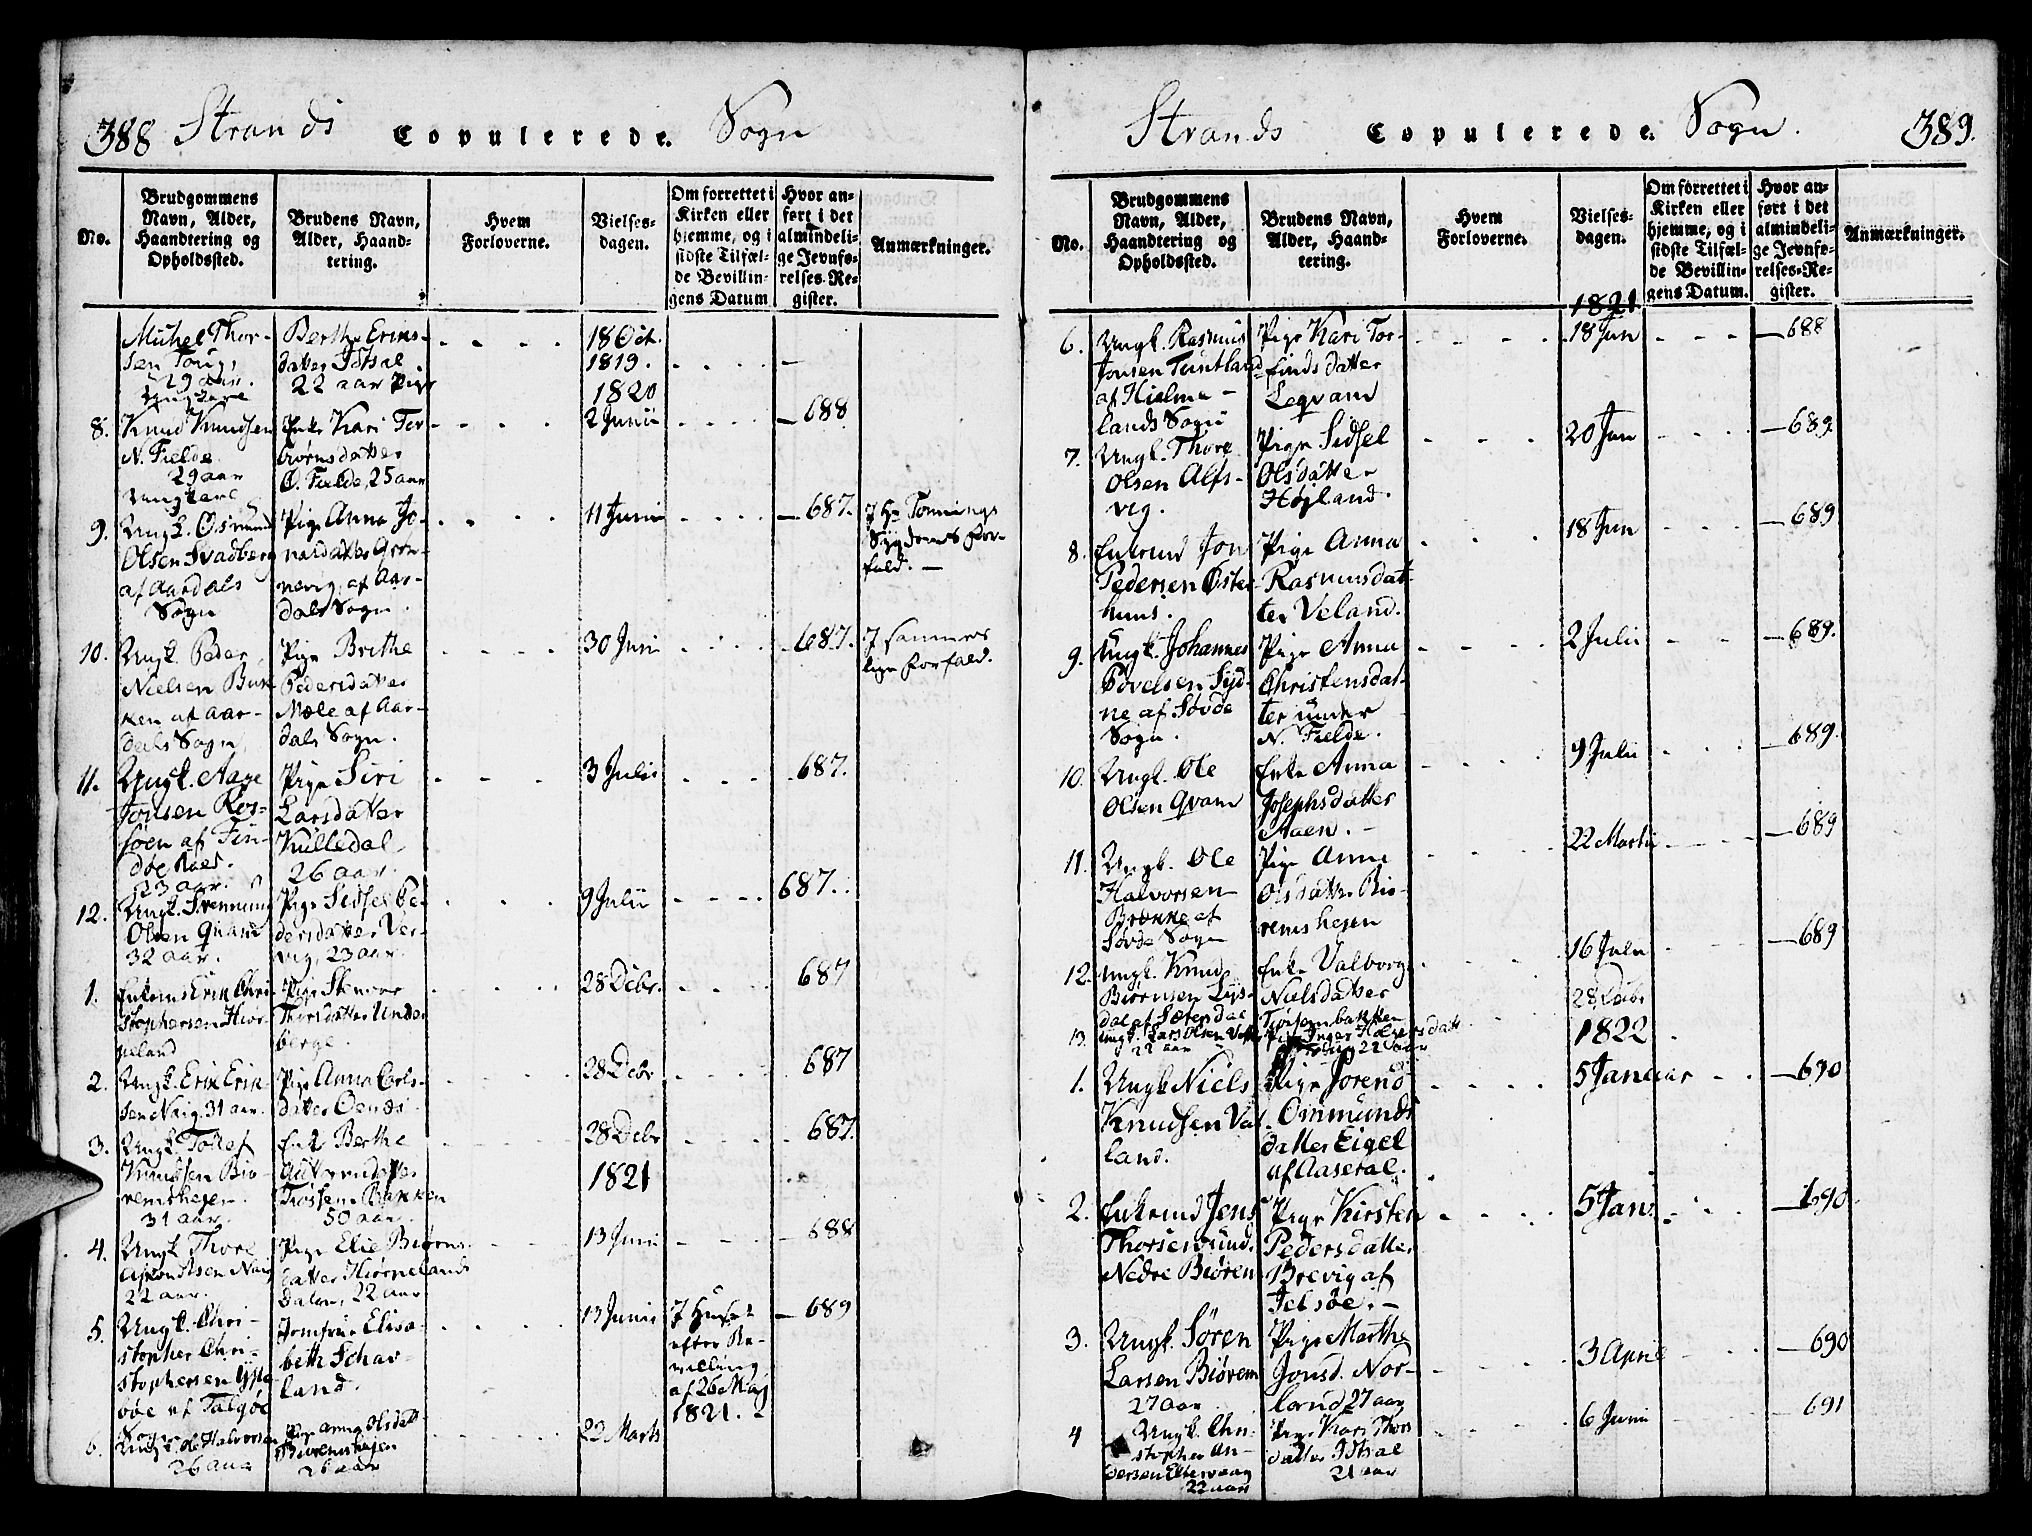 388 Strands Copulerede. Sogn
No.
Brudgommens
Navn, Alder,
Haandtering og
Opholdssted.
Brudens Navn,
Alder, Haand-
tering.
Hvem
Forloverne.
Vielses-
dagen.
Om forrettet i
Kirken eller
hjemme, og i
sidste Tilfæl-
de Bevillin-
gens Datum
Hvor an-
ført i det
almindeli-
ge Jevnfø-
relses-Re-
gister.
Anmærkninger.
Michel Thor-
sen
29 aar.
Ungkarl
Berthe Erics-
datter Idsal
22 aar Pige
18 Oct.
1819.
1820
8. Knud Knudsen
N. Fielde
29 aar
Ungkarl
Enke Kari Tor
biørnsdatter
Ø. Fielde, 25 aar
2 Junii
688
9. Ungk. Osmund
Olsen Svadberg
af Aardals
Sogn
Pige Anna Jo-
nasdatter Grøn-
nevig, af Aar-
dals Sogn.
11 Junii
687.
I Hr Tonnings
Sygdoms For-
fald.
10. Ungk. Peder
Nielsen Bak-
ken af Aar-
dals Sogn.
Pige Brithe
Pedersdatter
Mæle af Aar-
dals Sogn.
30 Juni
687.
I sammes
lige Forfald.
11. Ungk. Aage
Jonsen Ros-
søen af Fin-
døe
23 aar.
Pige Siri
Larsdatter
Kulledal
26 aar.
3 Julii
687.
12. Ungk. Svennung
Olsen Qvame
32 aar.
Pige Sidsel Pe-
dersdatter Ver-
vig, 23 aar.
9 Julii
687.
1. Enkemd Erik Chri-
stophersen Hior-
peland
Pige Stenvor
Thorsdatter Under
berge.
28 Debr.
687
2. Ungk. Erik Erik-
sen Naig. 31 aar.
Pige Anna Carls-
datter
28 Debr
687
3. Ungk. Tollef
Knudsen Biø-
remshejen.
31 aar.
Enke Berthe
Guttormsdatter
Tiøssem Bakken
50 aar.
28 Debr
1821
687.
4. Ungk Thore
Asmondsen Naig
22 aar.
Pige Elie Biørns
datter Hiørnelands
Dalen, 22 aar
13 Juni
688
5. Ungk. Chri-
stopher Chri-
stophersen
øe af Talgøe
Sogn
Jomfrue Elisa-
beth Schar-
land.
13 Junii
I Huset
efter Be-
villing
af 26 Maj
1821.
689
6. Ungk. Ole Halvorsen
26 aar
Pige Anna Olsdatt
Biøremshejen
26 aar
23 Marts
Strands Copulerede. Sogn. 389.
No.
Brudgommens
Navn, Alder,
Haandtering og
Opholdssted.
Brudens Navn,
Alder, Haand-
tering.
Hvem
Forloverne.
Vielses-
dagen.
Om forrettet i
Kirken eller
hjemme, og i
sidste Tilfæl-
de Bevillin-
gens Datum.
Hvor an-
ført i det
almindeli-
ge Jevnfø-
relses-Re-
gister.
Anmærkninger.
1821
6. Ungk. Rasmus
Jonsen Tuntland
af Hielme-
lands Sogn
Pige Kari Tor-
finds datter
Leqvam
18 Jun
688
7. Ungk. Thore
Olsen Alfs-
vig.
Pige Sidsel
Olsdatter
Højland.
20 Jun
689.
8. Enkemd Jon
Pedersen Øster-
huus.
Pige Anna
Rasmusdat-
ter Veland.
18 Jun
689
9. Ungk. Johannes
Povelsen Syd-
ne af Søvde
Sogn.
Pige Anna
Christensdat-
ter under
N. Fielde.
2 Julii
689.
10. Ungk. Ole
Olsen Qvame
Enke Anna
Josephsdatter
Aaen.
9 Julii
689.
11. Ungk. Ole
Halvorsen
Brønne af
Søvde Sogn
Pige Anna
Olsdatter Biø-
remshejen
22 Martii
689
12. Ungk. Knud
Biørnsen Lys-
dal af Sætersdal
Enke Valborg
Nielsdatter
Tiøsembakken
16 Julii
689
13. Ungk. Lars Olsen
22 aar
Pige Inger Holgersdatt
22 aar
28 Debr
1822
1. Ungk Niels
Knudsen Va-
land.
Pige Sørend
Omunds
datter Eigel
af Aaseral.
5 Januar
690
2. Enkemd Jens
Thorsensund.
Nedre Biørem
Pige Kirsten
Pedersdatter
Brevig af
Jelsøe.
5 Jan:
690.
3. Ungk. Søren
Larsen Biørem
27 aar
Pige Marthe
Jonsd. Nor-
land 27 aar
3 April
690
4 Ungk. Chri-
stopher An-
dersen Eltervaag
22 aar
Pige Kari Thors
datter Idsal
21 aar
6 Juni
691